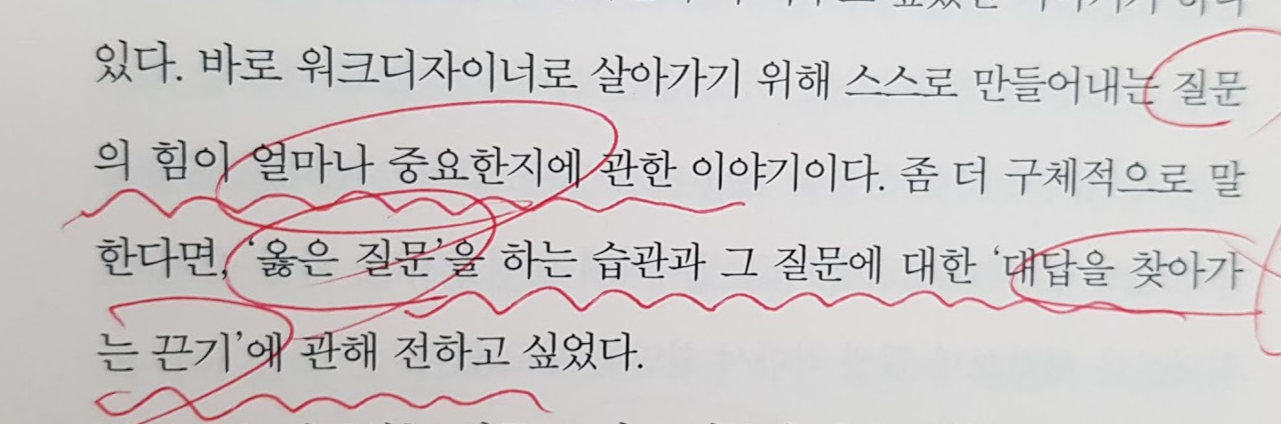 있다. 바로 워크디자이너로 살아가기 위해 스스로 만들어내는 질문
의 힘이 얼마나 중요한지에 관한 이야기이다. 좀 더 구체적으로 말
한다면, ‘옳은 질문’을 하는 습관과 그 질문에 대한 ‘대답을 찾아가
는 끈기’에 관해 전하고 싶었다.